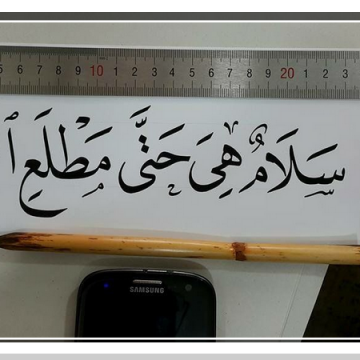 5 6 7 8 9 10 1 2 3 4 5 6 7 8 9 20 1 2 3
سَلَامٌ هِيَ حَتَّى مَطْلَعِ ا
SAMSUNG